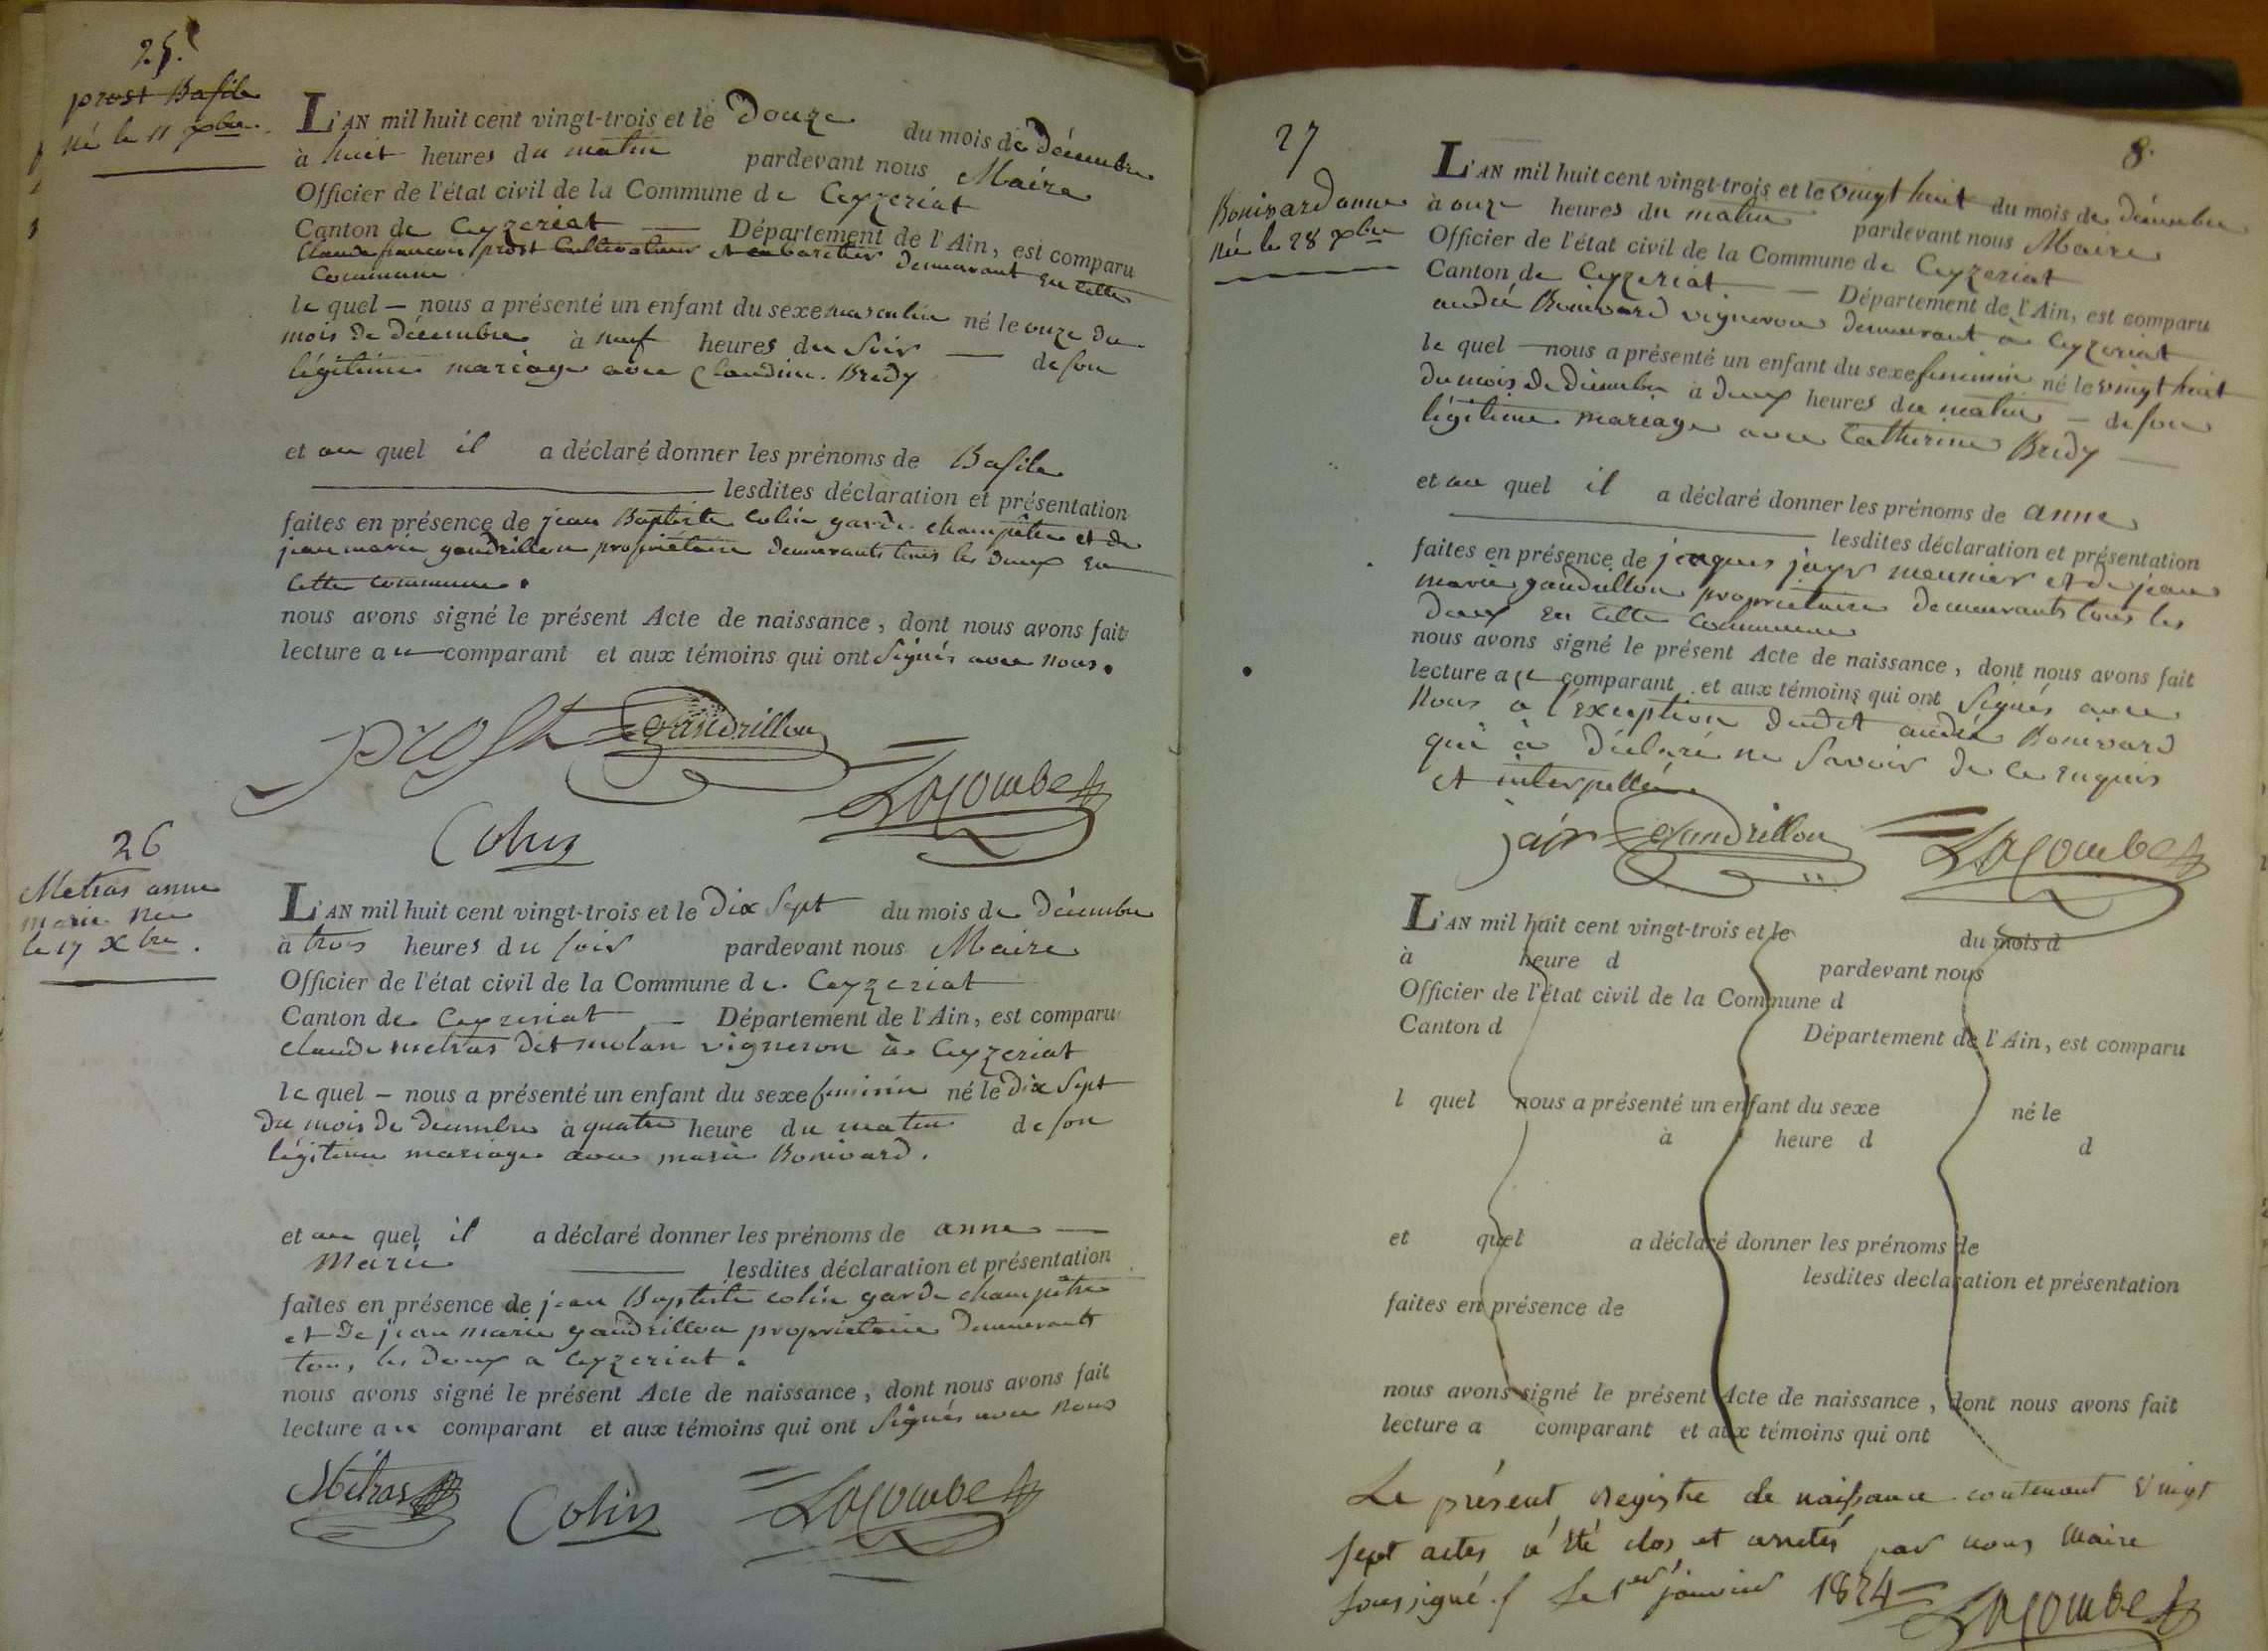 25.
prost Basile
né le 11 xbre.
L'AN mil huit cent vingt-trois et le Douze du mois de Décembre
à huit heures du matin pardevant nous Maire
Officier de l'état civil de la Commune de Ceyzeriat
Canton de Ceyzeriat — Département de l'Ain, est comparu
Claude françois prost Cultivateur et cabaretier demeurant en cette
Commune
le quel — nous a présenté un enfant du sexe masculin né le onze du
mois de décembre à neuf heures du soir — de son
légitime mariage avec Claudine Bredy
et au quel il a déclaré donner les prénoms de Basile
lesdites déclaration et présentation
faites en présence de jean Baptiste Colin garde champêtre et de
jean marie gandrillon propriétaire demeurants tous les deux en
cette commune.
nous avons signé le présent Acte de naissance, dont nous avons fait
lecture au comparant et aux témoins qui ont signés avec nous.
prost Gandrillon
LaCombe
Colin
26
Metras anne
marie née
le 17 xbre.
L'AN mil huit cent vingt-trois et le Dix Sept du mois de Décembre
à trois heures du soir pardevant nous Maire
Officier de l'état civil de la Commune de Ceyzeriat
Canton de Ceyzeriat — Département de l'Ain, est comparu
claude metras dit molan vigneron à Ceyzeriat
le quel — nous a présenté un enfant du sexe feminin né le Dix Sept
du mois de Decembre à quatre heure du matin de son
légitime mariage avec marie Bonivard.
et au quel il a déclaré donner les prénoms de anne —
Marie — lesdites déclaration et présentation
faites en présence de jean Baptiste colin garde champêtre
et de jean marie gandrillon propriétaire demeurants
tous les deux a Ceyzeriat.
nous avons signé le présent Acte de naissance, dont nous avons fait
lecture au comparant et aux témoins qui ont signés avec nous
Métras Colin LaCombe
8.
27
Bonivard anne
née le 28 xbre
L'AN mil huit cent vingt-trois et le vingt huit du mois de Décembre
à onze heures du matin pardevant nous Maire
Officier de l'état civil de la Commune de Ceyzeriat
Canton de Ceyzeriat — Département de l'Ain, est comparu
andré Bonivard vigneron demeurant à Ceyzeriat
le quel — nous a présenté un enfant du sexe feminin né le vingt huit
du mois de Décembre à deux heures du matin — de son
légitime mariage avec Catherine Bredy —
et au quel il a déclaré donner les prénoms de anne
lesdites déclaration et présentation
faites en présence de jacques jayr meunier et de jean
marie gandrillon propriétaire demeurants tous les
deux en cette commune
nous avons signé le présent Acte de naissance, dont nous avons fait
lecture au comparant et aux témoins qui ont signés avec
nous a l'exception dudit andré Bonivard
qui à déclaré ne savoir de ce enquis
et interpellé.
jaÿr Gandrillon LaCombe
L'AN mil huit cent vingt-trois et le du mois d
à heure d pardevant nous
Officier de l'état civil de la Commune d
Canton d Département de l'Ain, est comparu
l quel nous a présenté un enfant du sexe né le
à heure d d
et quel a déclaré donner les prénoms de
lesdites declaration et présentation
faites en présence de
nous avons signé le présent Acte de naissance, dont nous avons fait
lecture a comparant et aux témoins qui ont
Le présent Registre de naissance contenant vingt
sept actes a été clos et arretés par nous Maire
soussigné. Le 1er janvier 1824
LaCombe